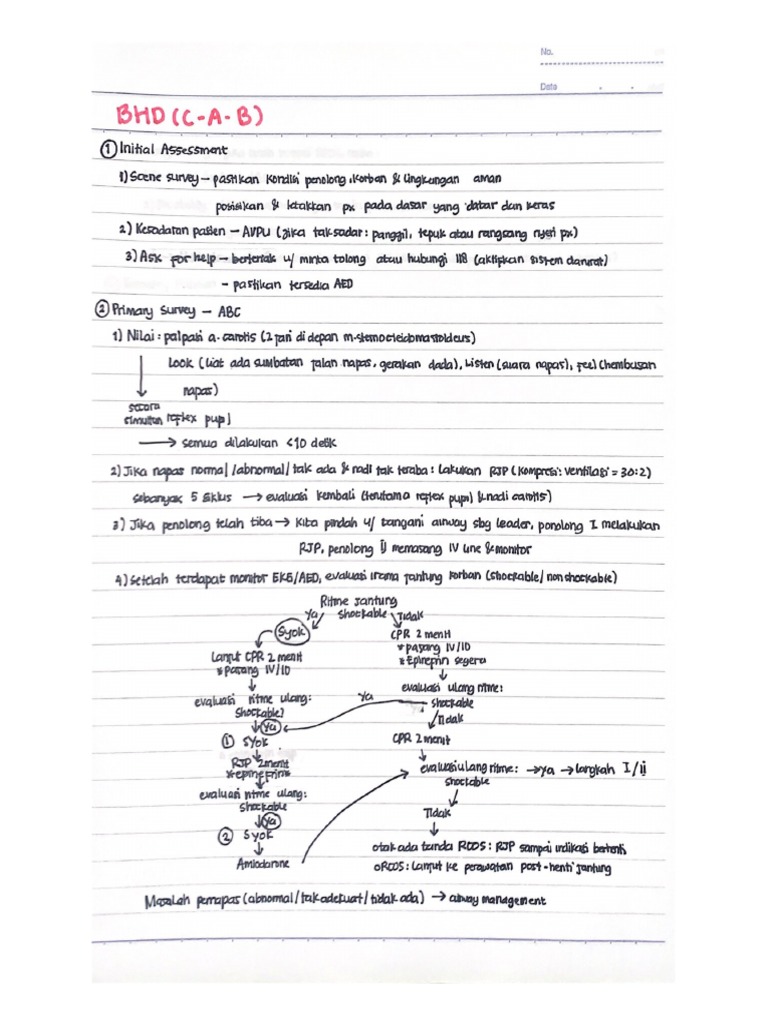 No.
Date
BHD (C-A-B)
① Initial Assessment
1) Scene survey – pastikan kondisi penolong, korban & lingkungan aman
posisikan & letakkan px pada dasar yang datar dan keras
2) Kesadaran pasien – AVPU (jika tak sadar: panggil, tepuk atau rangsang nyeri px)
3) Ask for help – berteriak u/ minta tolong atau hubungi 118 (aktifkan sistem darurat)
– pastikan tersedia AED
② Primary Survey – ABC
1) Nilai : palpasi a. carotis (2 jari di depan m. sternocleidomastoideus)
Look (liat ada sumbatan jalan napas, gerakan dada), Listen (suara napas), Feel (hembusan
napas)
secara
simultan reflex pupil
→ semua dilakukan <10 detik
2) Jika napas normal/abnormal/tak ada & nadi tak teraba : lakukan RJP (kompresi : ventilasi = 30:2)
sebanyak 5 siklus → evaluasi kembali (terutama reflex pupil & nadi carotis)
3) Jika penolong telah tiba → kita pindah u/ tangani airway sbg leader, ponolong I melakukan
RJP, penolong II memasang IV line & monitor
4) Setelah terdapat monitor EKG/AED, evaluasi irama jantung korban (shockable/nonshockable)
Ritme jantung
Ya shockable Tidak
Syok
CPR 2 menit
Lanjut CPR 2 menit
* Pasang IV/IO
* pasang IV/IO
* Epinefrin segera
evaluasi ritme ulang:
shockable?
Ya
evaluasi ulang ritme:
shockable
Ya
Tidak
① Syok
CPR 2 menit
RJP 2menit
* epinefrin
evaluasi ulang ritme: → ya → langkah I/II
shockable
evaluasi ritme ulang:
shockable
Ya
Tidak
② Syok
Amiodarone
o tak ada tanda ROSC : RJP sampai indikasi berhenti
o ROSC : Lanjut ke perawatan post-henti jantung
Masalah pernapas (abnormal/tak adekuat/tidak ada) → airway management